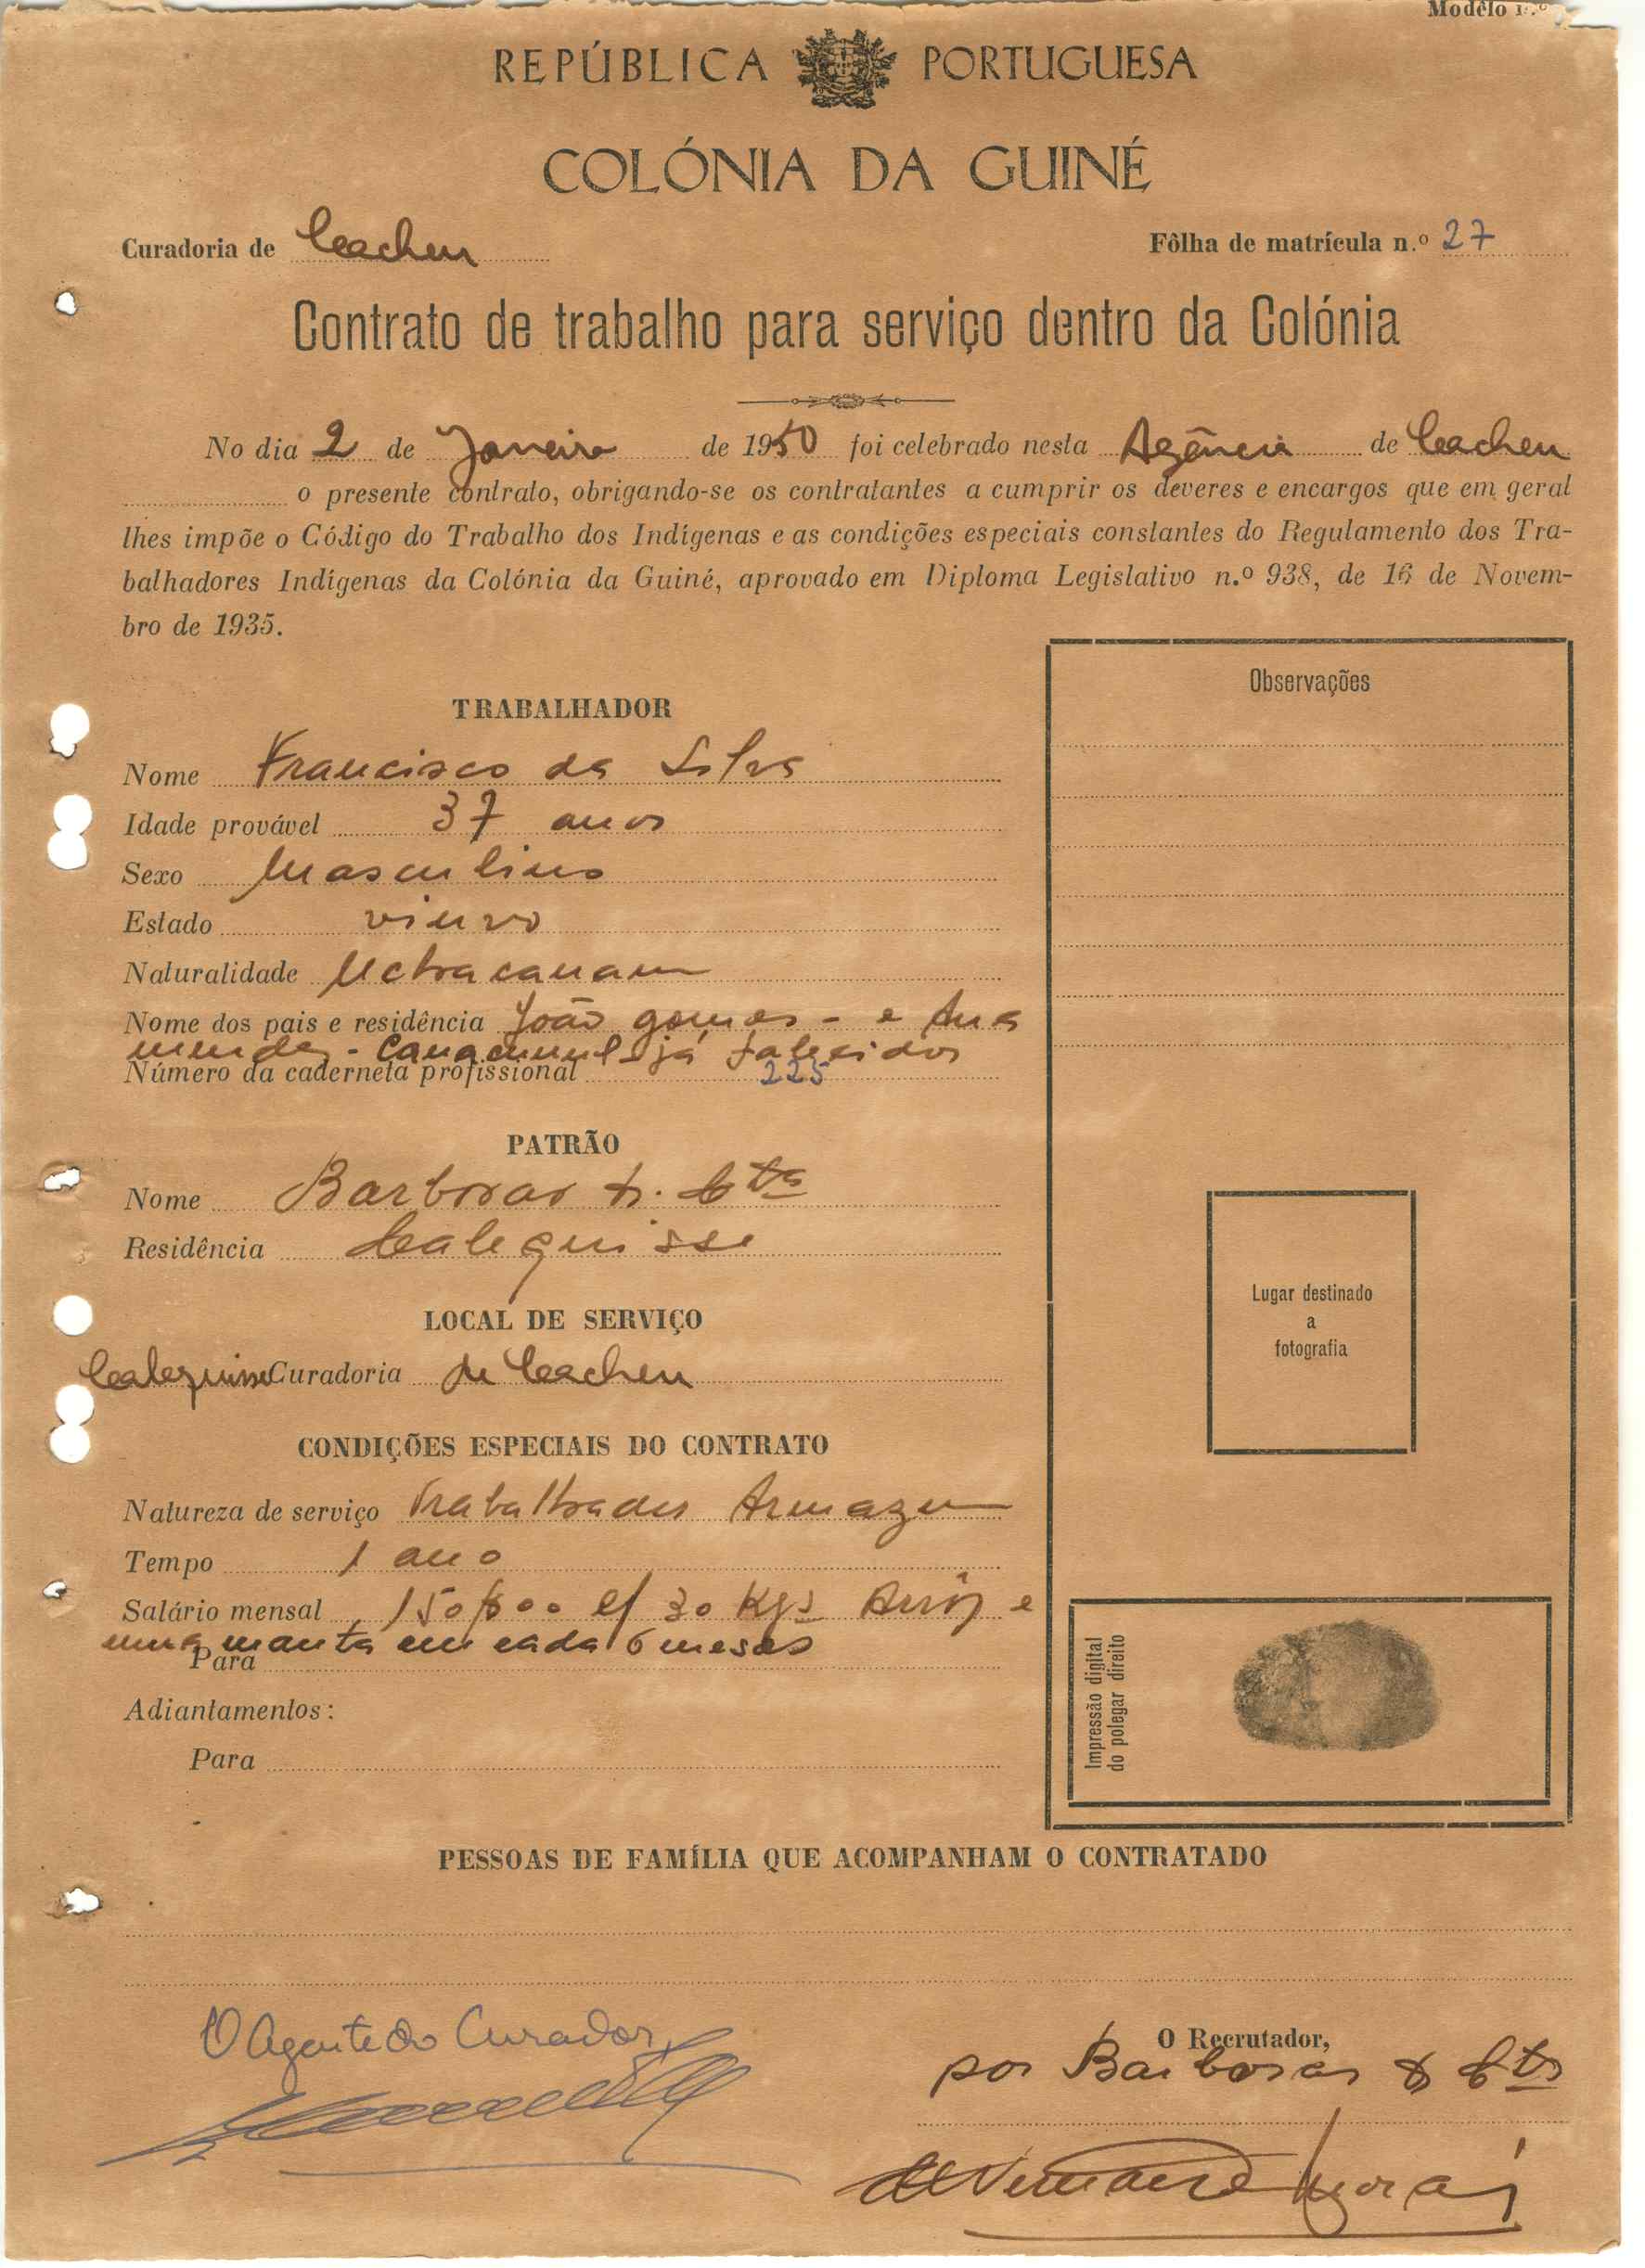 Modêlo n.º
REPÚBLICA PORTUGUESA
COLÓNIA DA GUINÉ
Curadoria de Cacheu Fôlha de matrícula n.º 27
Contrato de trabalho para serviço dentro da Colónia
No dia 2 de Janeiro de 1950 foi celebrado nesta Agência de Cacheu
o presente contrato, obrigando-se os contratantes a cumprir os deveres e encargos que em geral
lhes impõe o Código do Trabalho dos Indígenas e as condições especiais constantes do Regulamento dos Tra-
balhadores Indígenas da Colónia da Guiné, aprovado em Diploma Legislativo n.º 938, de 16 de Novem-
bro de 1935.
Observações
TRABALHADOR
Nome Francisco da Silva
Idade provável 37 anos
Sexo Masculino
Estado viuvo
Naturalidade
Nome dos pais e residência João gomes - e Ana
mendes - já falecidos
Número da caderneta profissional 225
PATRÃO
Nome Barbosas & Cta
Residência Calequisse
LOCAL DE SERVIÇO
Calequisse Curadoria de Cacheu
Lugar destinado
a
fotografia
CONDIÇÕES ESPECIAIS DO CONTRATO
Natureza de serviço Trabalhador Armazem
Tempo 1 ano
Salário mensal 150$00 c/ 30 Kgs Arrôz e
uma manta em cada 6 meses
Para
Adiantamentos:
Para
Impressão digital
do polegar direito
PESSOAS DE FAMÍLIA QUE ACOMPANHAM O CONTRATADO
O Agente do Curador,
O Recrutador,
por Barbosas & Cta